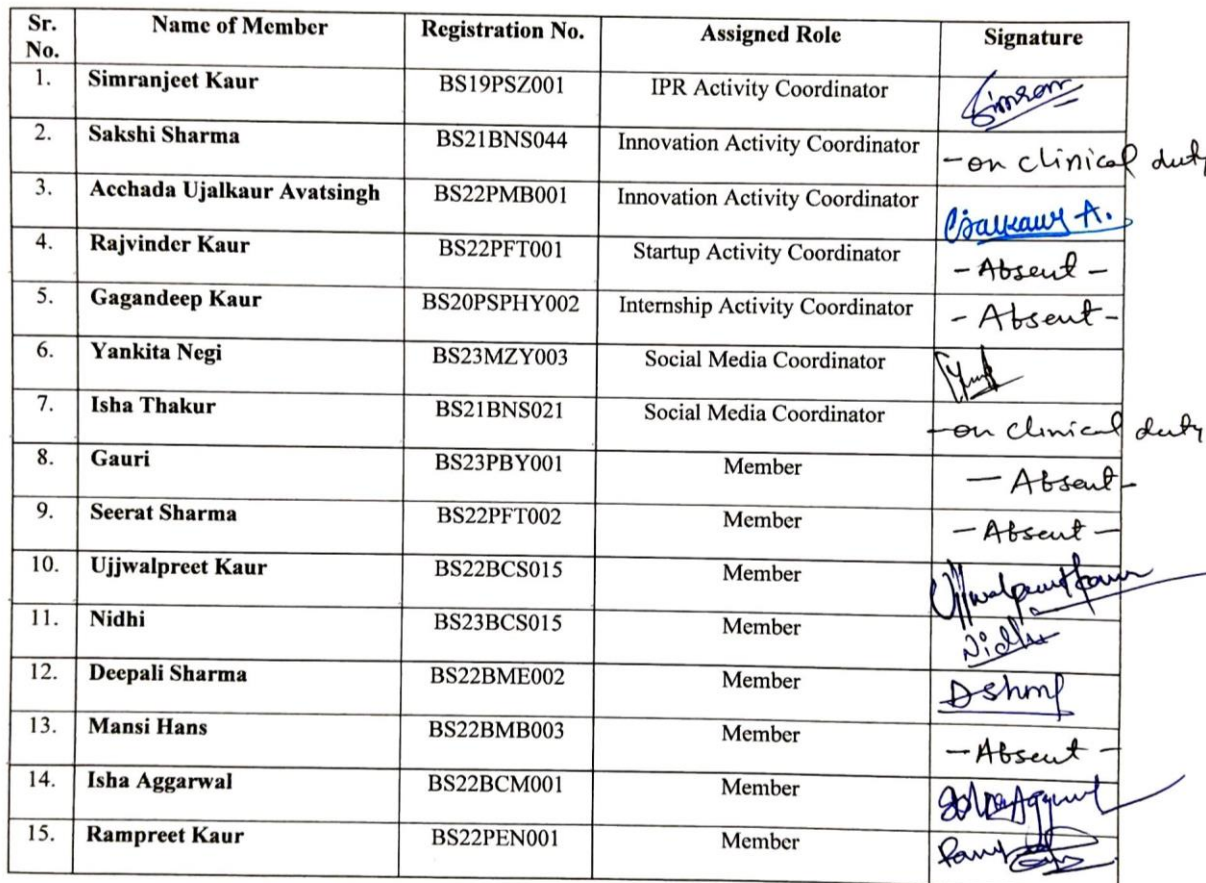 Sr. No. Name of Member Registration No. Assigned Role Signature
1. Simranjeet Kaur BS19PSZ001 IPR Activity Coordinator Simran
2. Sakshi Sharma BS21BNS044 Innovation Activity Coordinator - on clinical duty
3. Acchada Ujalkaur Avatsingh BS22PMB001 Innovation Activity Coordinator Ujalkaur A.
4. Rajvinder Kaur BS22PFT001 Startup Activity Coordinator - Absent -
5. Gagandeep Kaur BS20PSPHY002 Internship Activity Coordinator - Absent -
6. Yankita Negi BS23MZY003 Social Media Coordinator
7. Isha Thakur BS21BNS021 Social Media Coordinator - on clinical duty
8. Gauri BS23PBY001 Member - Absent -
9. Seerat Sharma BS22PFT002 Member - Absent -
10. Ujjwalpreet Kaur BS22BCS015 Member Ujjwalpreet Kaur
11. Nidhi BS23BCS015 Member Nidhi
12. Deepali Sharma BS22BME002 Member
13. Mansi Hans BS22BMB003 Member - Absent -
14. Isha Aggarwal BS22BCM001 Member
15. Rampreet Kaur BS22PEN001 Member